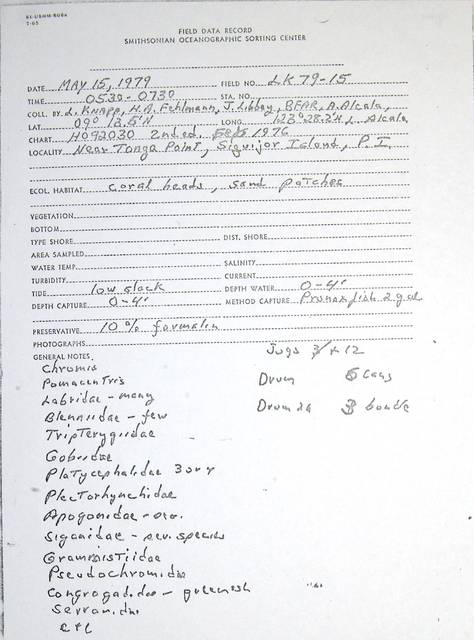 SI-USNM-808A
7-65
FIELD DATA RECORD
SMITHSONIAN OCEANOGRAPHIC SORTING CENTER
DATE MAY 15, 1979 FIELD NO. LK 79-15
TIME 0530-0730 STA. NO.
COLL. BY L. Knapp, H.A. Fehlmann, J. Libbey, BFAR, A. Alcala,
LAT 09° 13.5'N LONG. 123°28.2'E L. Alcala
CHART H092030 2nd ed. Feb 1976
LOCALITY Near Tonga Point, Siquijor Island, P.I.
ECOL. HABITAT coral heads, sand patches
VEGETATION
BOTTOM
TYPE SHORE DIST. SHORE
AREA SAMPLED
WATER TEMP. SALINITY
TURBIDITY CURRENT
TIDE low slack DEPTH WATER 0-4'
DEPTH CAPTURE 0-4' METHOD CAPTURE Pronoxfish 2 gal
PRESERVATIVE 10% formalin
PHOTOGRAPHS
GENERAL NOTES Jugs 12
Chromis
Pomacentris Drum 6
Labridae - many
Blenniidae - few Drum
Tripterygiidae
Gobiidae
Platycephalidae 3
Plectorhynchidae
Apogonidae - sev.
Siganidae - sev. species
Grammistiidae
Pseudochromidae
Congrogadidae - greenish
Serranidae
etc